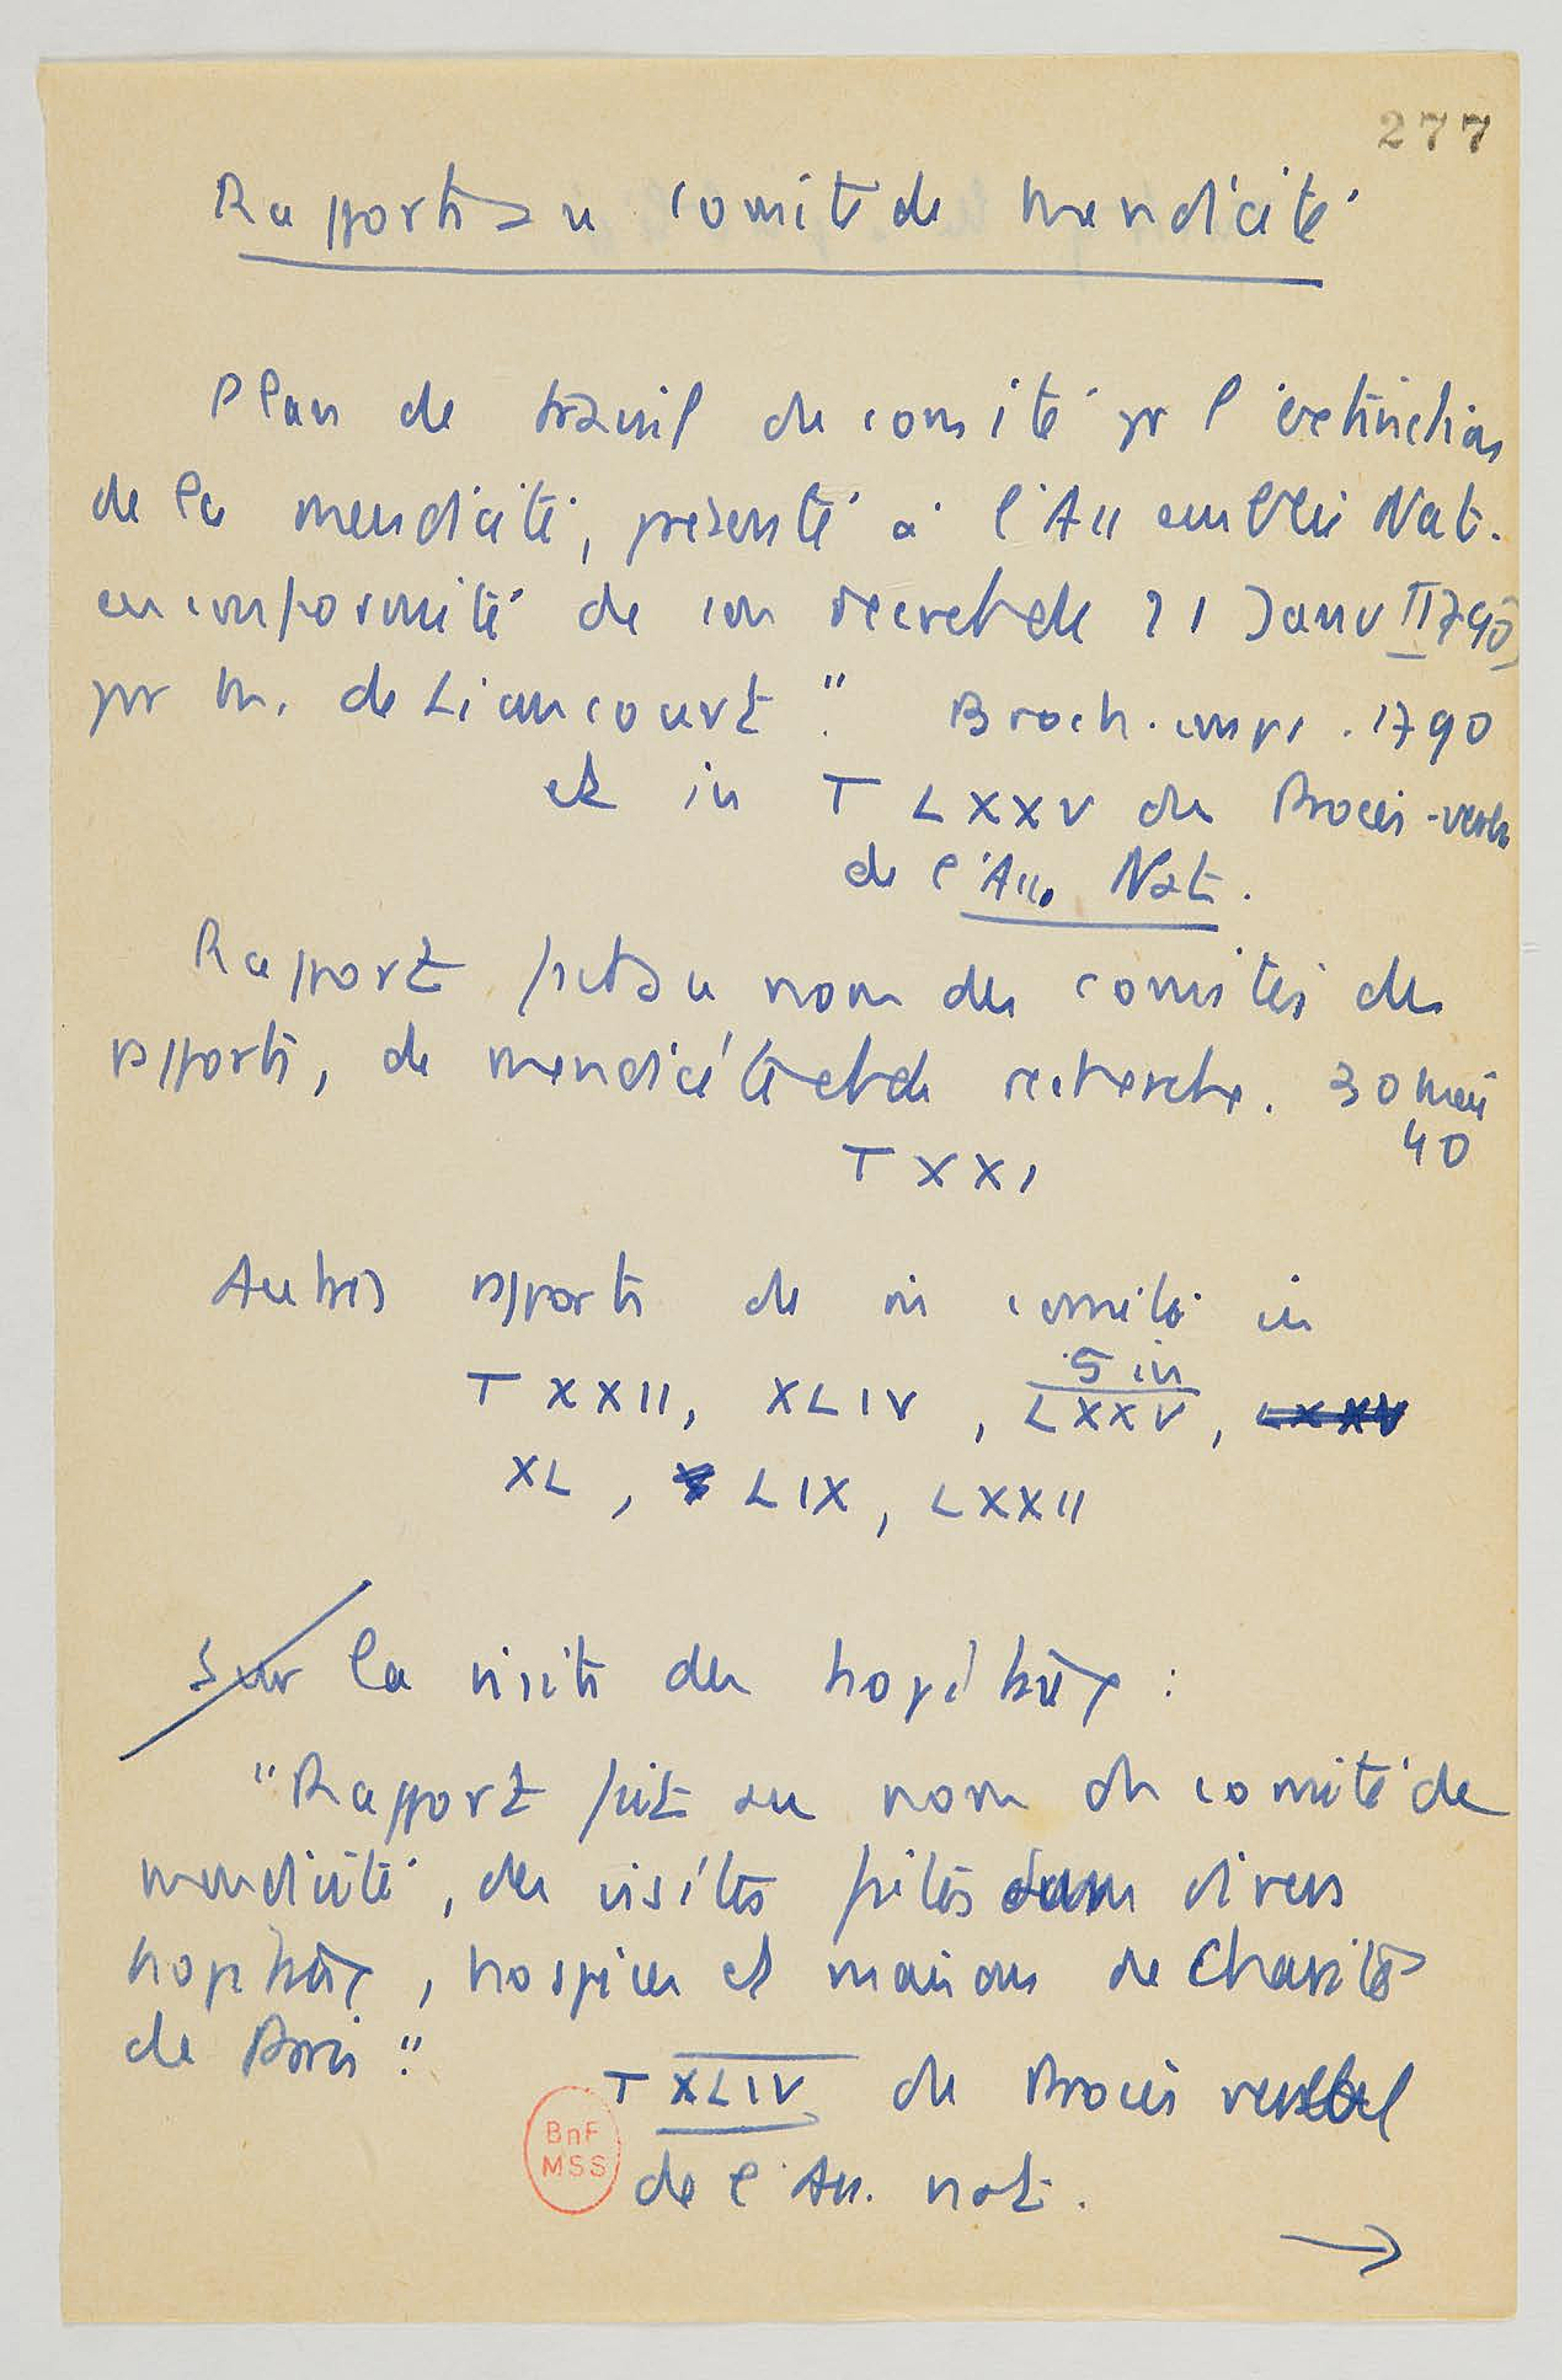 277
Rapports du comité de mendicité
Plan de travail du comité pr l'extinction
de la mendicité, présenté à l'Assemblée Nat.
en conformité de son décret du 21 Janv 1790,
pr M. de Liancourt". Broch. impr. 1790
et in T LXXV du Procès-verb
de l'Ass. Nat.
Rapport fait au nom des comités des
rapports, de mendicité et de recherche. 30 Mai
90
T XXI
Autres rapports de ce comité in
T XXII, XLIV, LXXV,
5 in
XL, LIX, LXXII
Sur la visite des hopitaux :
"Rapport fait au nom du comité de
mendicité, des visites faites dans divers
hopitaux, hospices et maisons de Charité
de Paris".
T XLIV du Procès verbal
de l'Ass. nat.
→
BnF
MSS